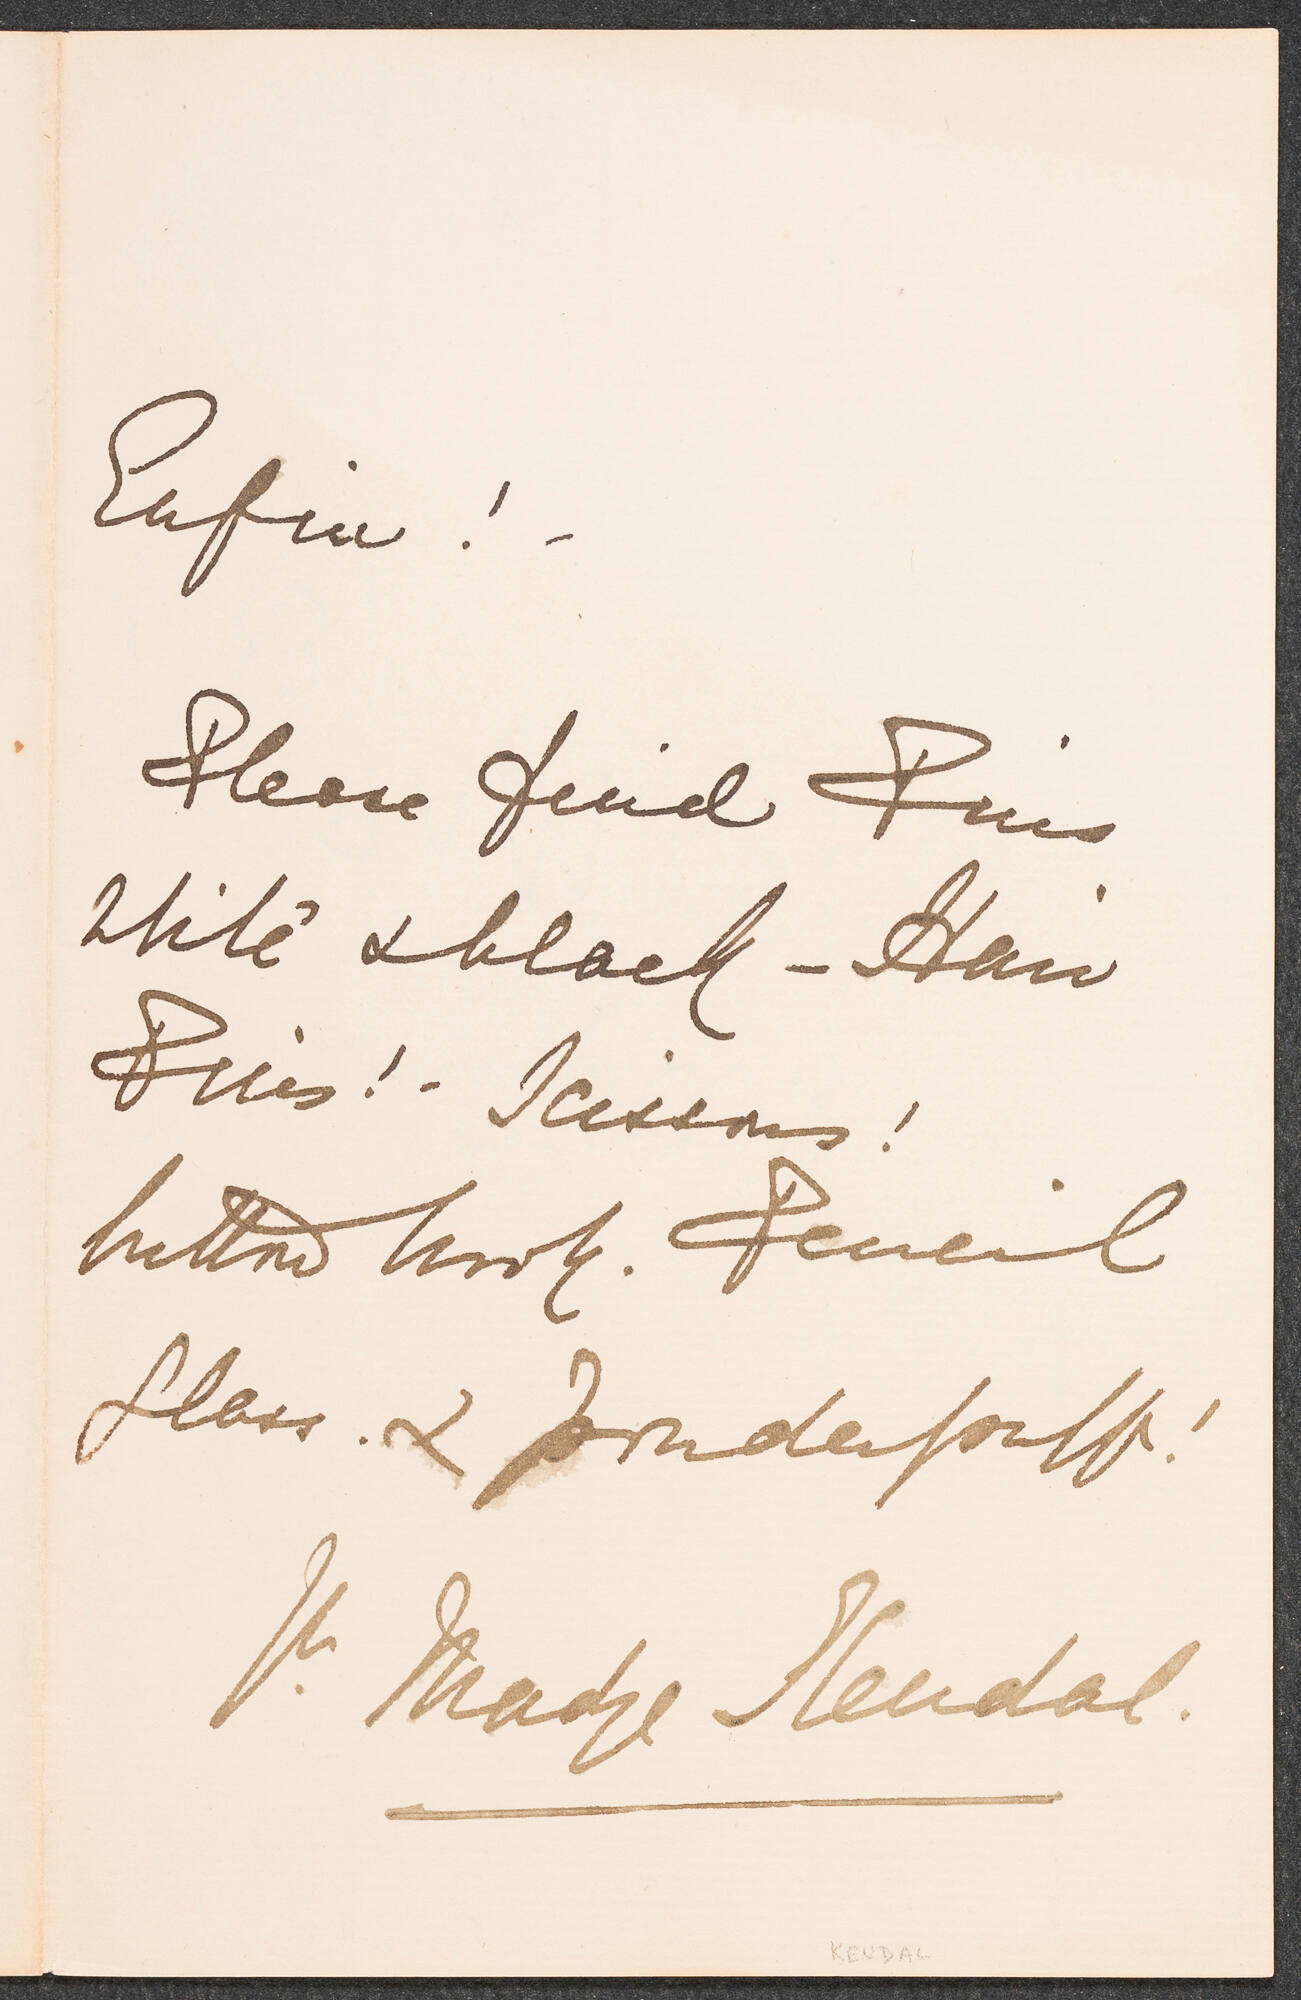 Enfin! -
Please find Pins
white & black - Hair
Pins! - Scissors!
button hook. Pencil
Glass. & Powderpuff!
Yr. Madge Kendal.
KENDAL